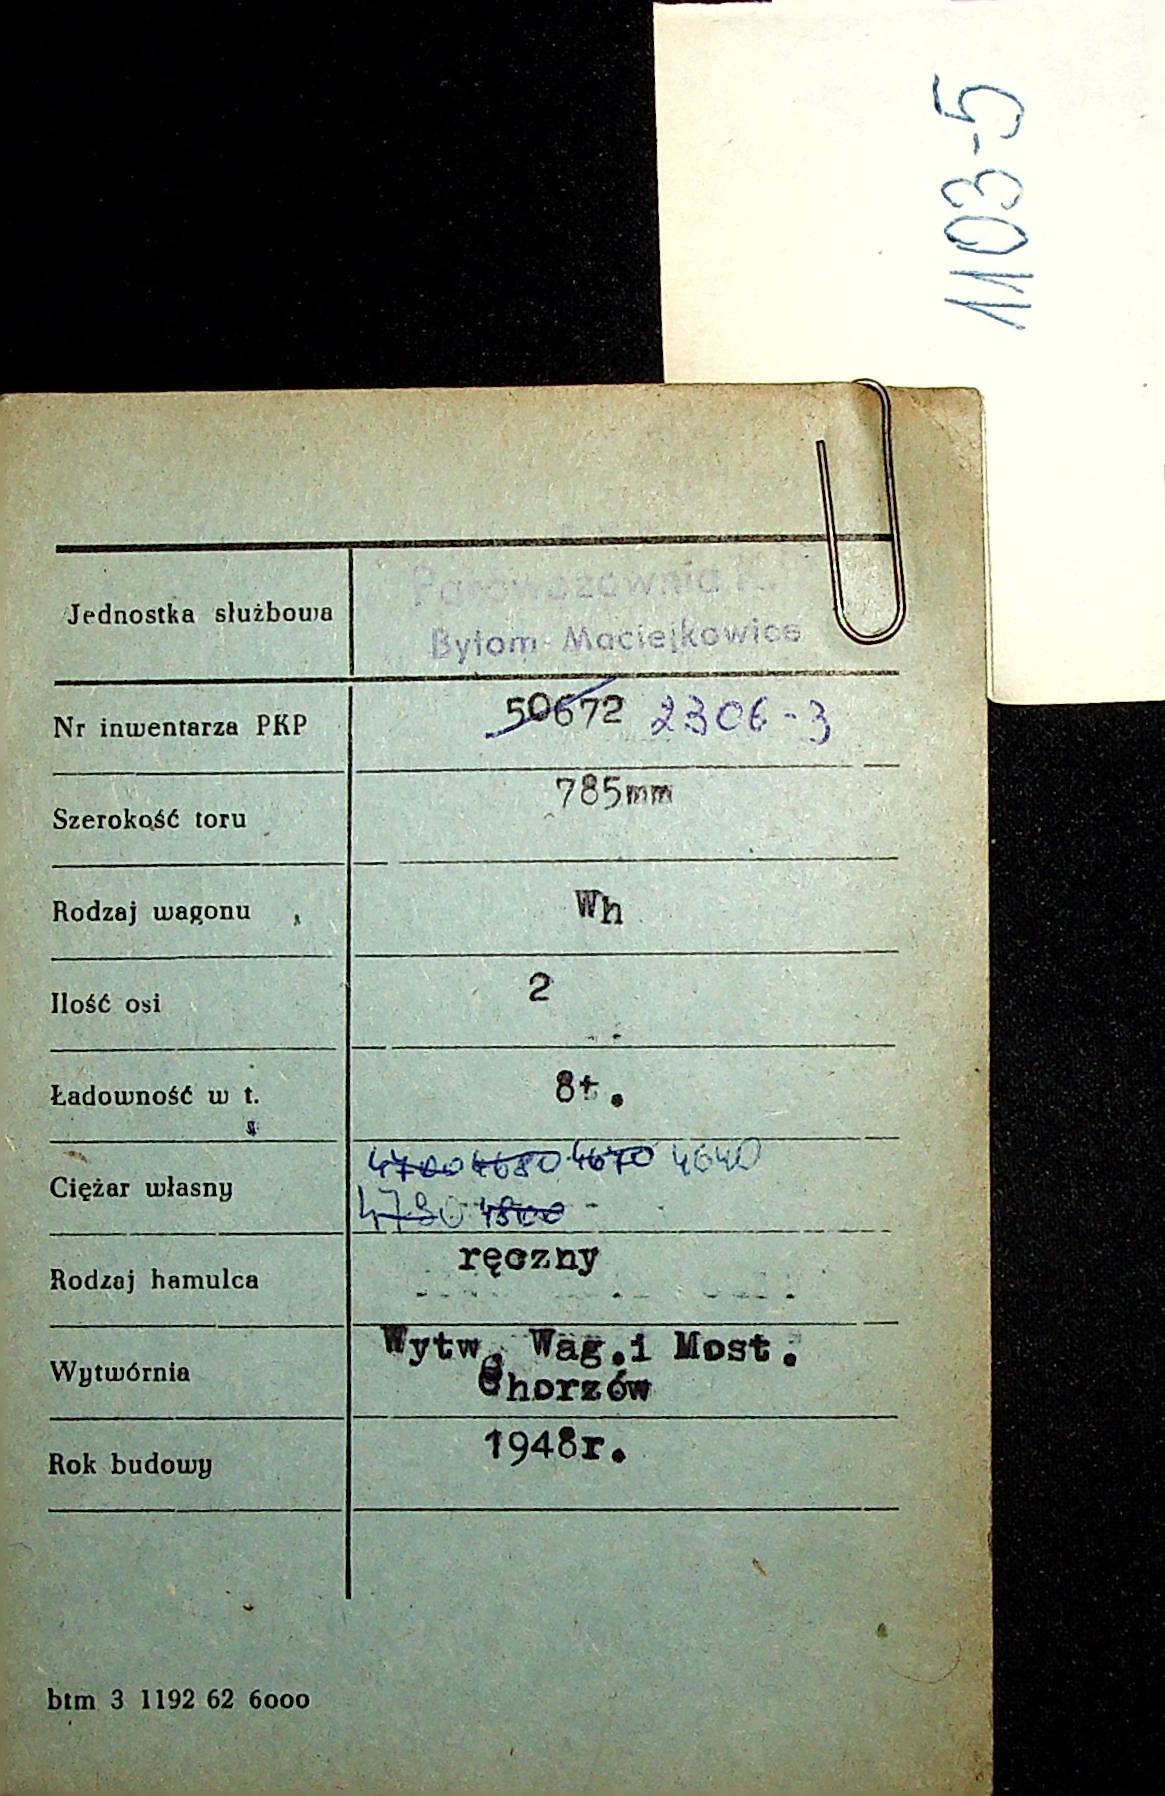 1103-5
Jednostka służbowa
Parowozownia
Bytom-Maciejkowice
Nr inwentarza PKP 50672 2306-3
Szerokość toru 785mm
Rodzaj wagonu Wh
Ilość osi 2
Ładowność w t. 8t.
Ciężar własny 4700 4680 4670 4640
4800
Rodzaj hamulca ręczny
Wytwórnia Wytw. Wag.i Most.
Chorzów
Rok budowy 1948r.
btm 3 1192 62 6000